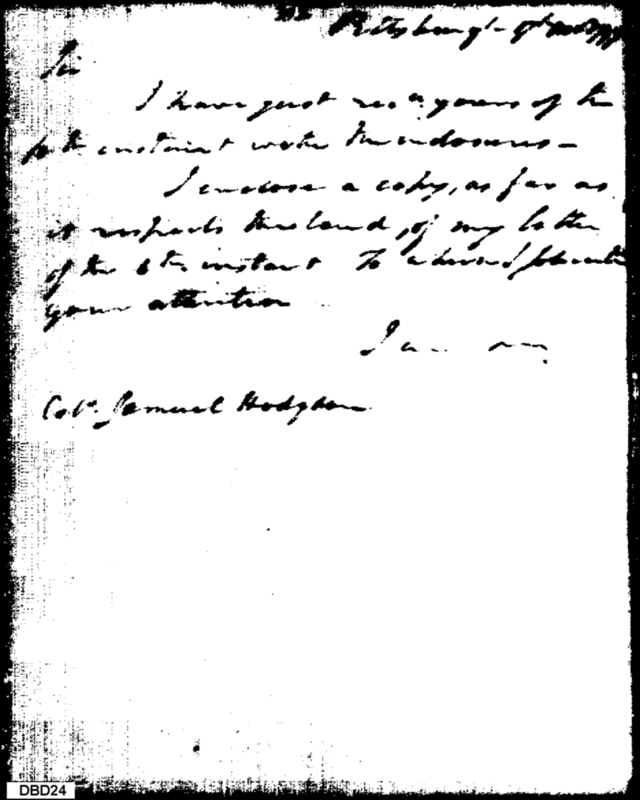 Pittsburgh 9th Nov
Sir
I have just rec'd yours of the
instant with the inclosures –
I enclose a copy, as far as
it respects the land, of my letter
of the 6th instant to
your attention
I am
Colo. Samuel Hodgdon
DBD24